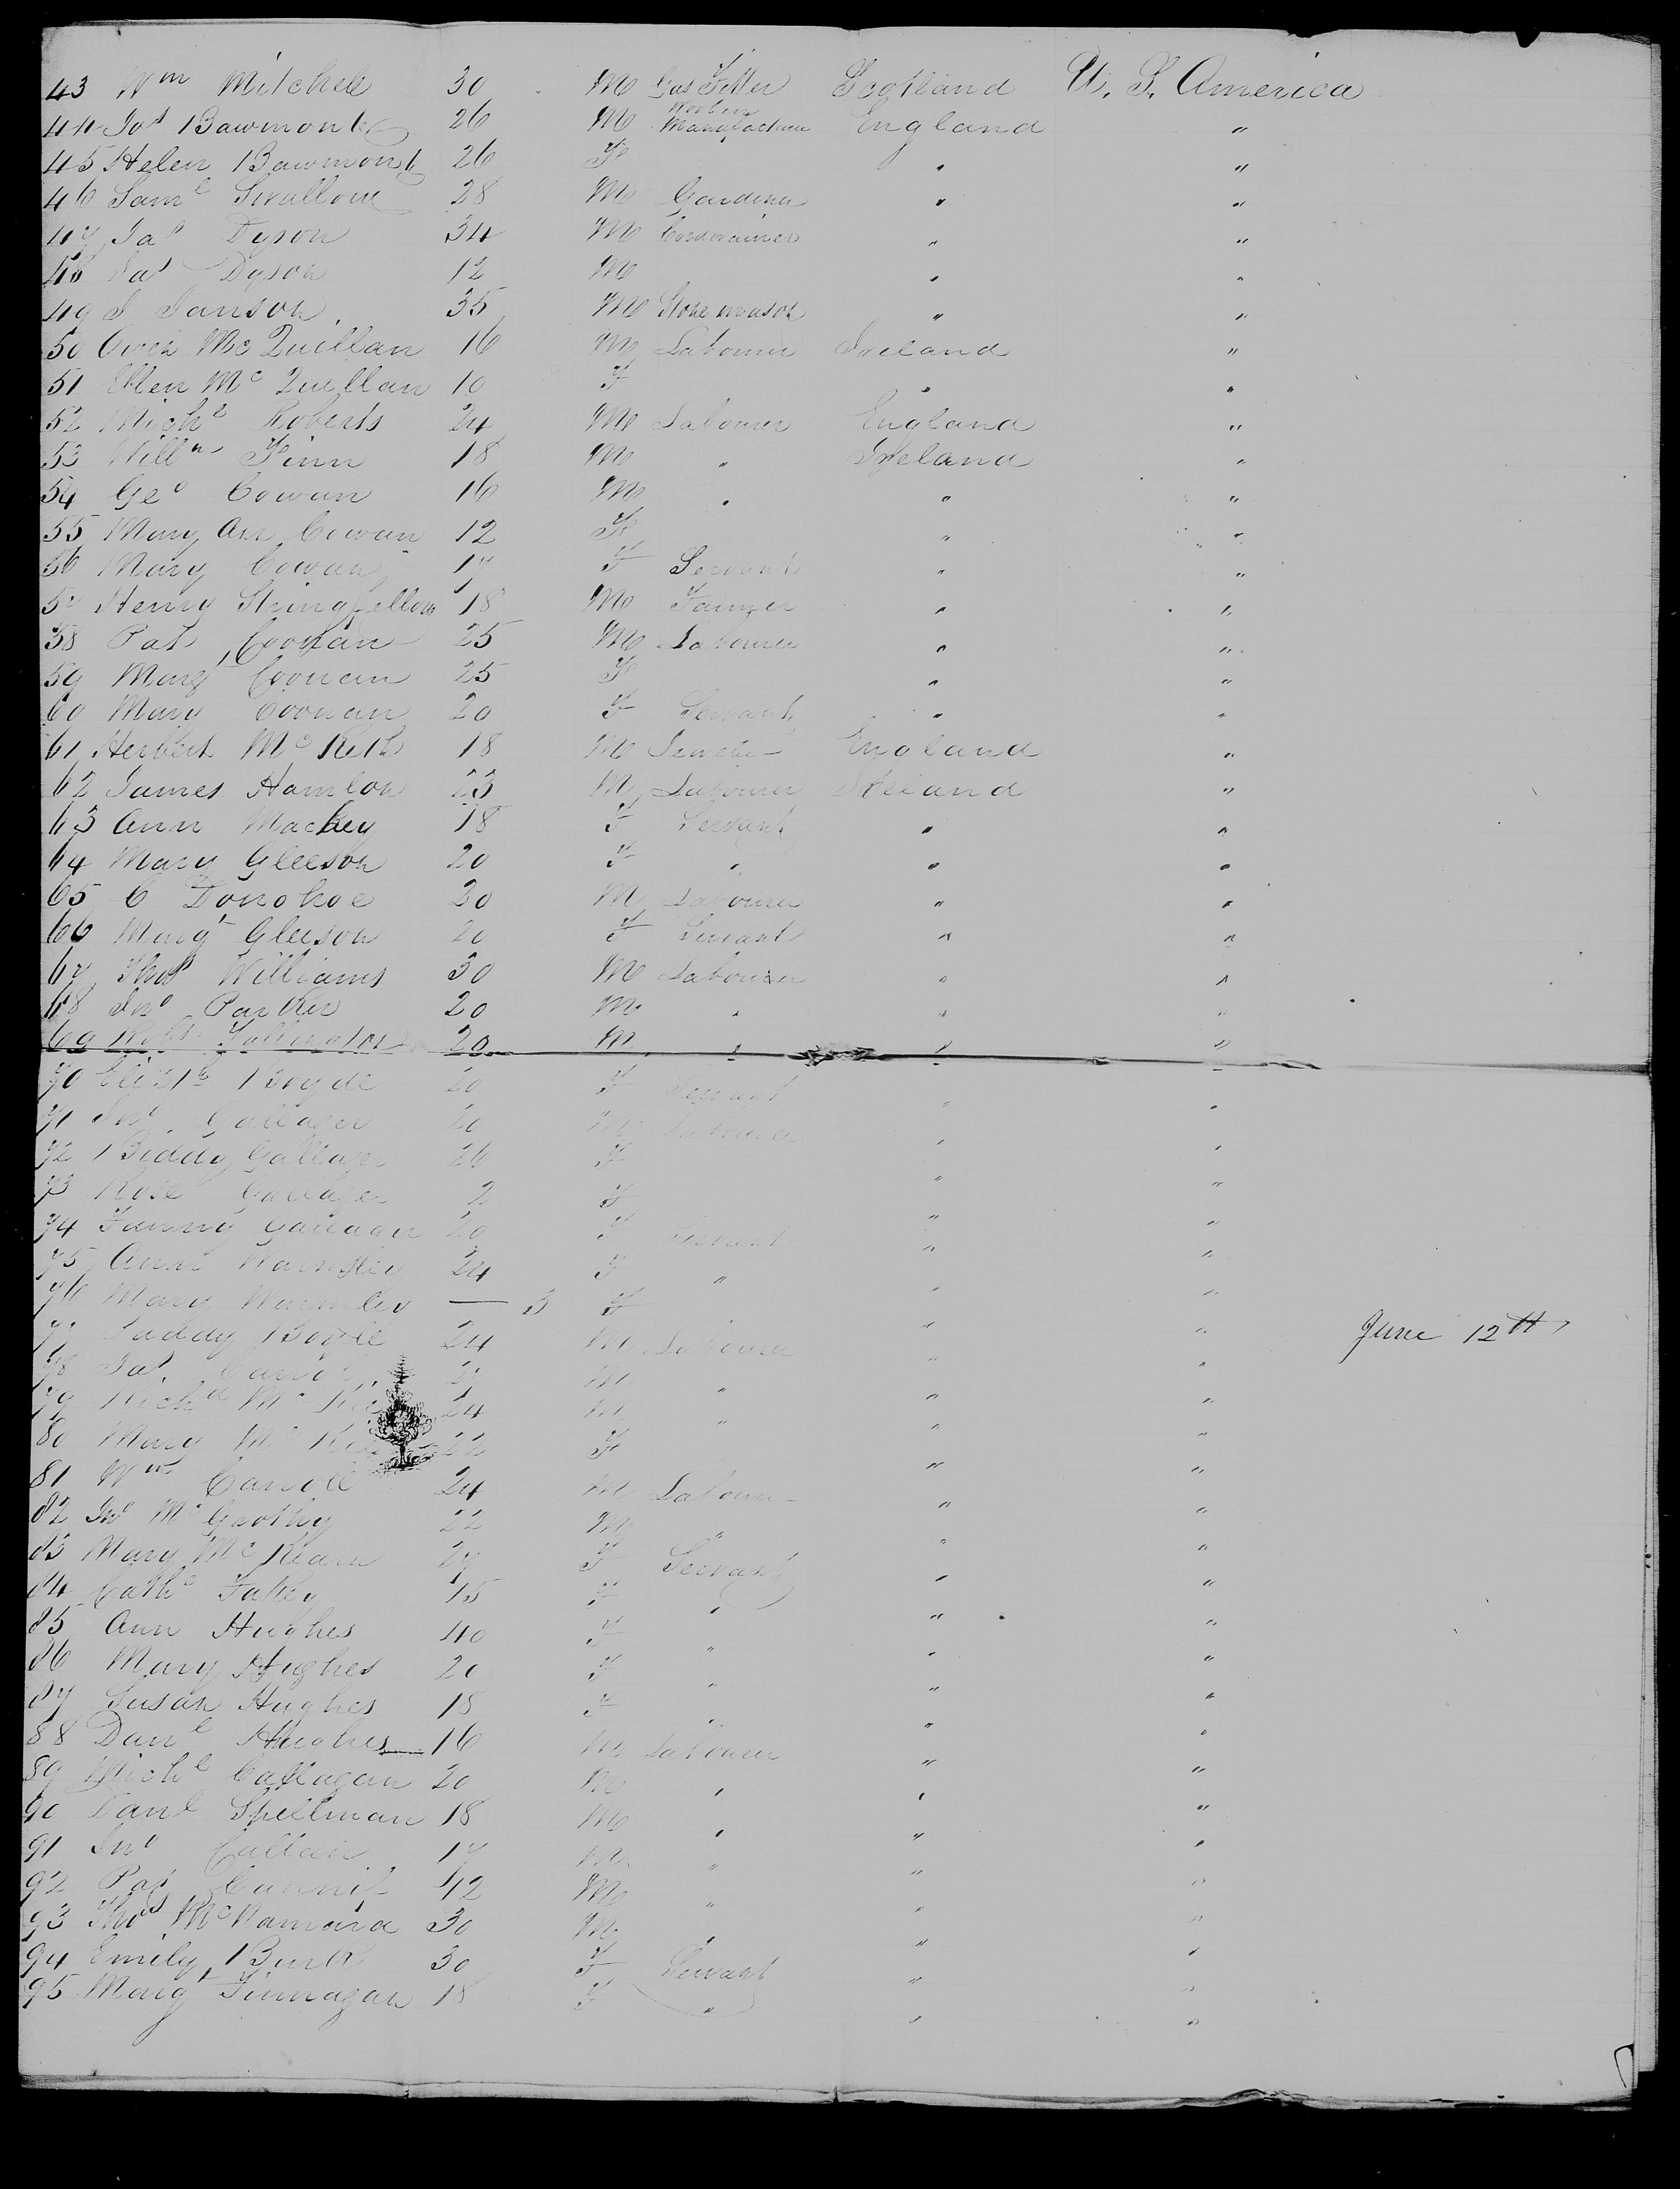 43 Wm Mitchell 30 M Gas Fitter Scotland U. S. America
44 Jos Bawmont 26 M Woolen Manufacturer England "
45 Helen Bawmont 26 F " "
46 Saml Swallow 28 M Gardener " "
47 Jas Dyson 34 M Cordwainer " "
48 Jas Dyson 12 M " "
49 J Janson 35 M Stone mason " "
50 Owen McQuillan 16 M Labourer Ireland "
51 Ellen McQuillan 10 F " "
52 Michl Roberts 24 M Labourer England "
53 Willm Finn 18 M " Ireland "
54 Geo Cowan 16 M " " "
55 Mary Ann Cowan 12 F " "
56 Mary Cowan 17 F Servant " "
57 Henry Stringfellow 18 M Farmer " "
58 Pat Coonan 25 M Labourer " "
59 Margt Coonan 25 F " "
60 Mary Coonan 20 F Servant " "
61 Herbert Mc Keth 18 M England "
62 James Hamlon 23 M Labourer Ireland "
63 Ann Mackey 18 F Servant " "
64 Mary Gleeson 20 F " " "
65 C Donohoe 30 M Labourer " "
66 Margt Gleeson 20 F Servant " "
67 Thos Williams 30 M Labourer " "
68 Jno Parker 20 M " " "
69 Robt 20 M " " "
70 Elizth Boyde 20 F Servant " "
71 Jno Gallager 20 M Labourer " "
72 Biddy Gallager 26 F " "
73 Rose Gallager 2 F " "
74 Fanny Gallager 20 F Servant " "
75 Ann Warmsley 24 F " " "
76 Mary Warmsley — 3 F " "
77 Paddy Boyle 24 M Labourer " " June 12th
78 Jas Carrol 27 M " " "
79 Richd Mc 24 M " " "
80 Mary Mc 22 F " "
81 Wm Carroll 24 M Labourer " "
82 Jno McGrothy 22 M " " "
83 Mary McKearn 27 F Servant " "
84 Cathe Fahey 15 F " " "
85 Ann Hughes 40 F " " "
86 Mary Hughes 20 F " " "
87 Susan Hughes 18 F " " "
88 Danl Hughes 16 M Labourer " "
89 Michl Callagan 20 M " " "
90 Danl Spellman 18 M " " "
91 Jno Callan 17 M " " "
92 Pat Cunnif 42 M " " "
93 Thos McNamara 30 M " " "
94 Emily Burk 30 F Servant " "
95 Margt Finnagan 18 F " " "